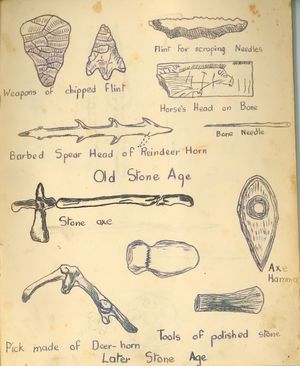 Flint for scraping Needles
Weapons of chipped flint
Horse's Head on Bone
Bone Needle
Barbed Spear Head of Reindeer Horn
Old Stone Age
Stone axe
Axe
Hamma
Pick made of Deer-horn
Tools of polished stone
Later Stone Age